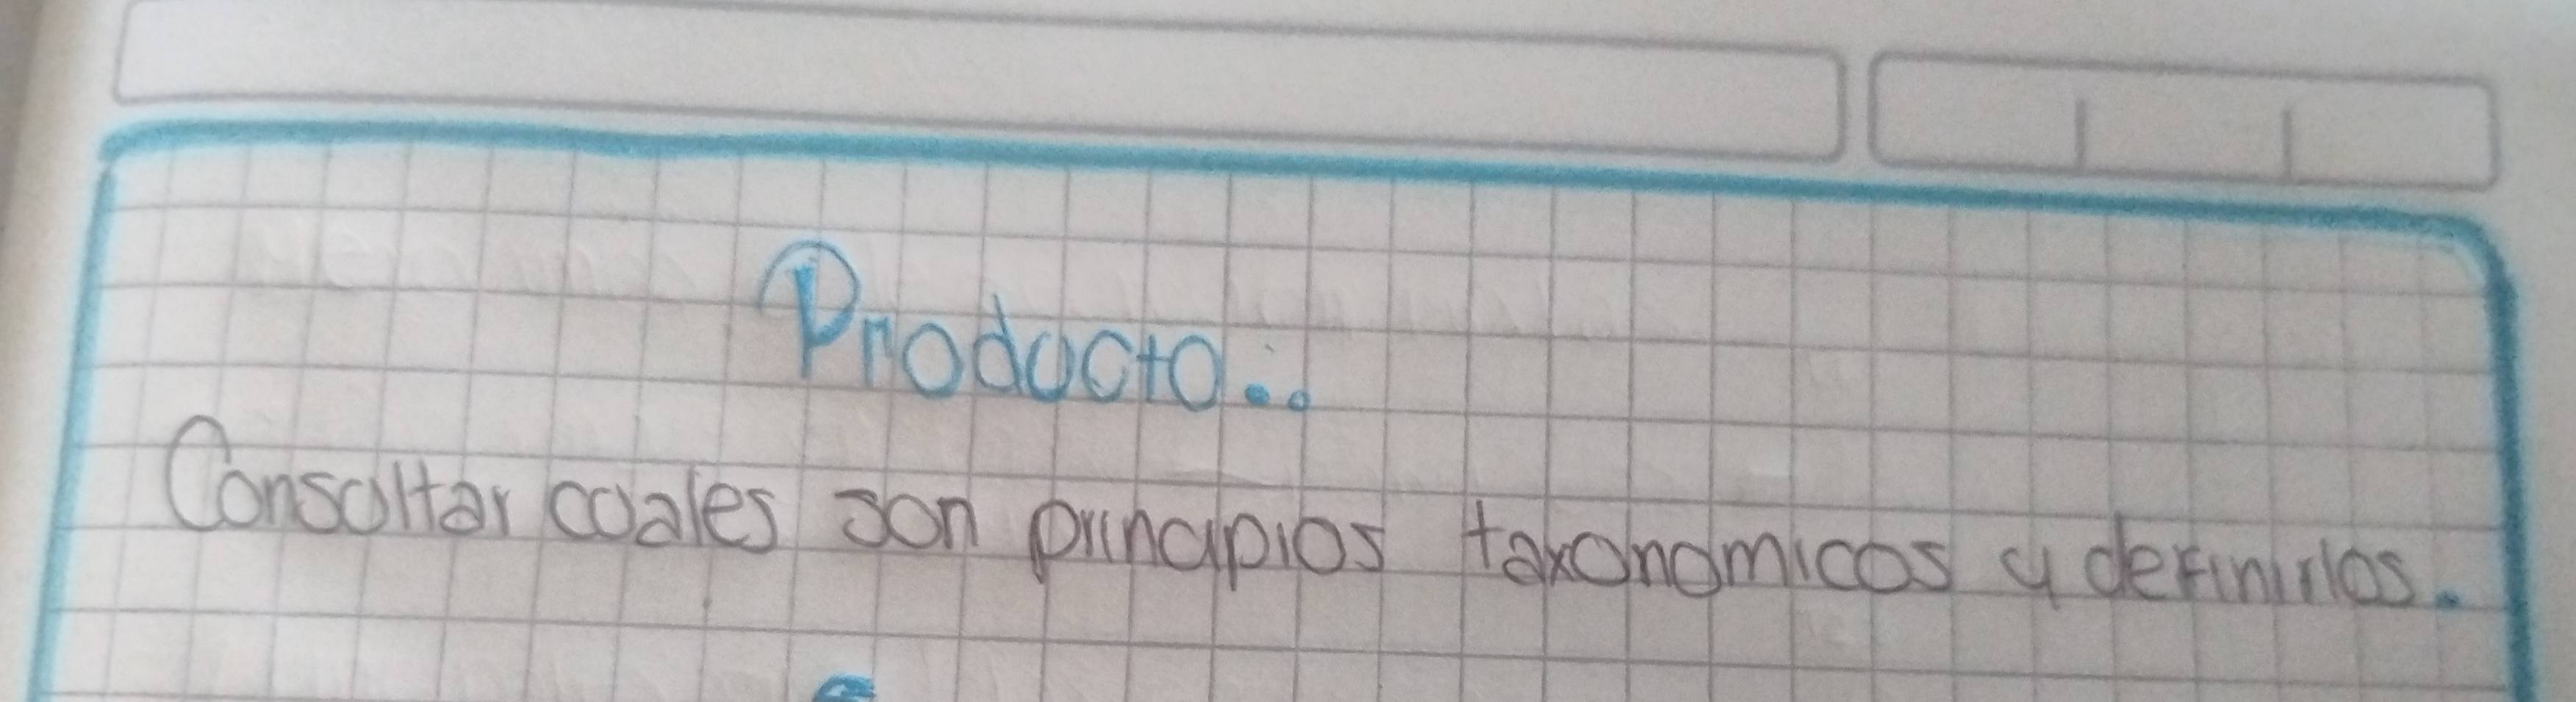 Producto..
Consultar cuales son principios taxonomicos y definirlos.